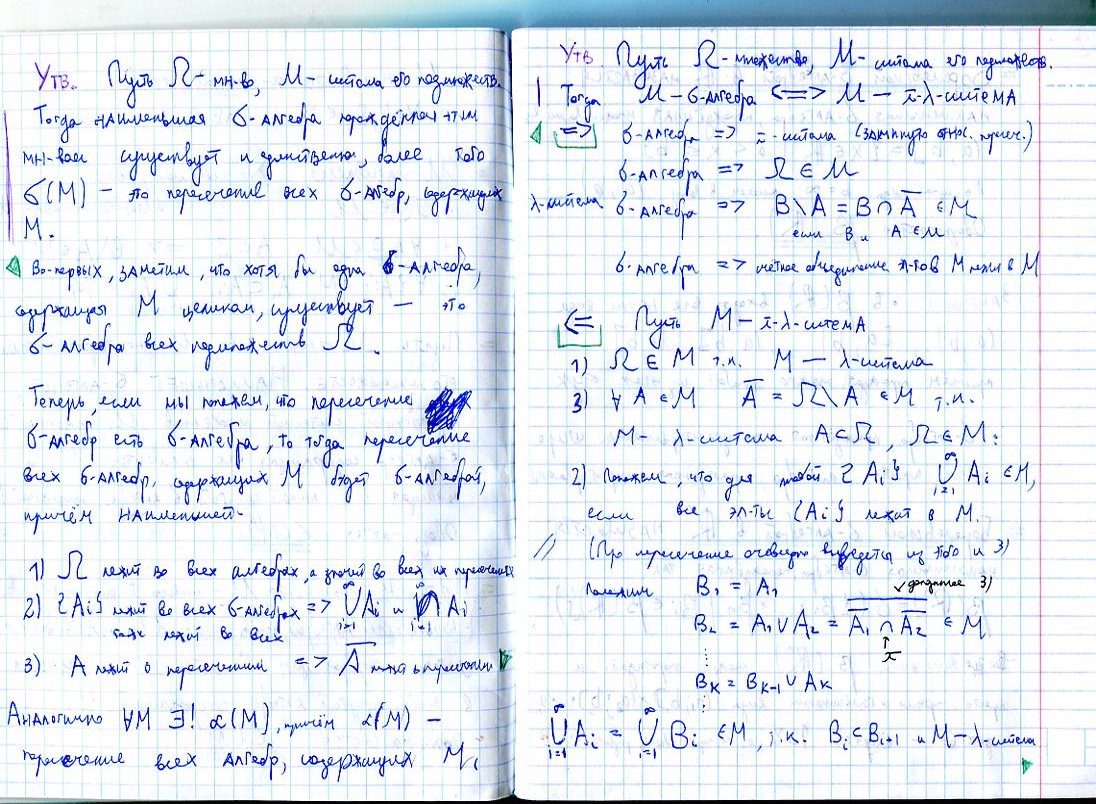 Утв. Пусть Ω - мн-во, M - система его подмножеств.
Тогда наименьшая σ-алгебра порождённая этим
мн-вом существует и единственна, более того
σ(M) — это пересечение всех σ-алгебр, содержащих
M.
Во-первых, заметим, что хотя бы одна σ-алгебра,
содержащая M целиком, существует — это
σ-алгебра всех подмножеств Ω.
Теперь, если мы покажем, что пересечение
σ-алгебр есть σ-алгебра, то тогда пересечение
всех σ-алгебр, содержащих M будет σ-алгеброй,
причём наименьшей.
1) Ω лежит во всех алгебрах, а значит во всех их пересечениях
2) {Ai} лежит во всех σ-алгебрах => ∞⋃i=1 Ai и ∞⋂i=1 Ai
тоже лежит во всех
3). A лежит в пересечении => A̅ лежит в пересечении
Аналогично ∀M ∃! α(M), причём α(M) —
пересечение всех алгебр, содержащих M.
Утв. Пусть Ω - множество, M - система его подмножеств.
Тогда M - σ-алгебра <=> M — π-λ-система
=> σ-алгебра => π-система (замкнуто относ. пересеч.)
σ-алгебра => Ω ∈ M
λ-система σ-алгебра => B\A = B∩A̅ ∈ M
если B и A ∈ M
σ-алгебра => счётное объединение эл-тов M лежит в M
<= Пусть M — π-λ-система
1) Ω ∈ M т.к. M — λ-система
3) ∀ A ∈ M A̅ = Ω\A ∈ M т.к.
M - λ-система A⊂Ω, Ω∈M.
2) Покажем, что для любой {Ai} ∞⋃i=1 Ai ∈ M,
если все эл-ты {Ai} лежат в M.
// (Про пересечение очевидно выведется из этого и 3)
Положим B₁ = A₁ доказанное 3)
B₂ = A₁ ∪ A₂ = \overline{A̅₁ ∩ A̅₂} ∈ M
π
⋮
Bₖ = Bₖ₋₁ ∪ Aₖ
⋮
∞⋃i=1 Ai = ∞⋃i=1 Bi ∈ M, т.к. Bi ⊂ Bi+1 и M — λ-система